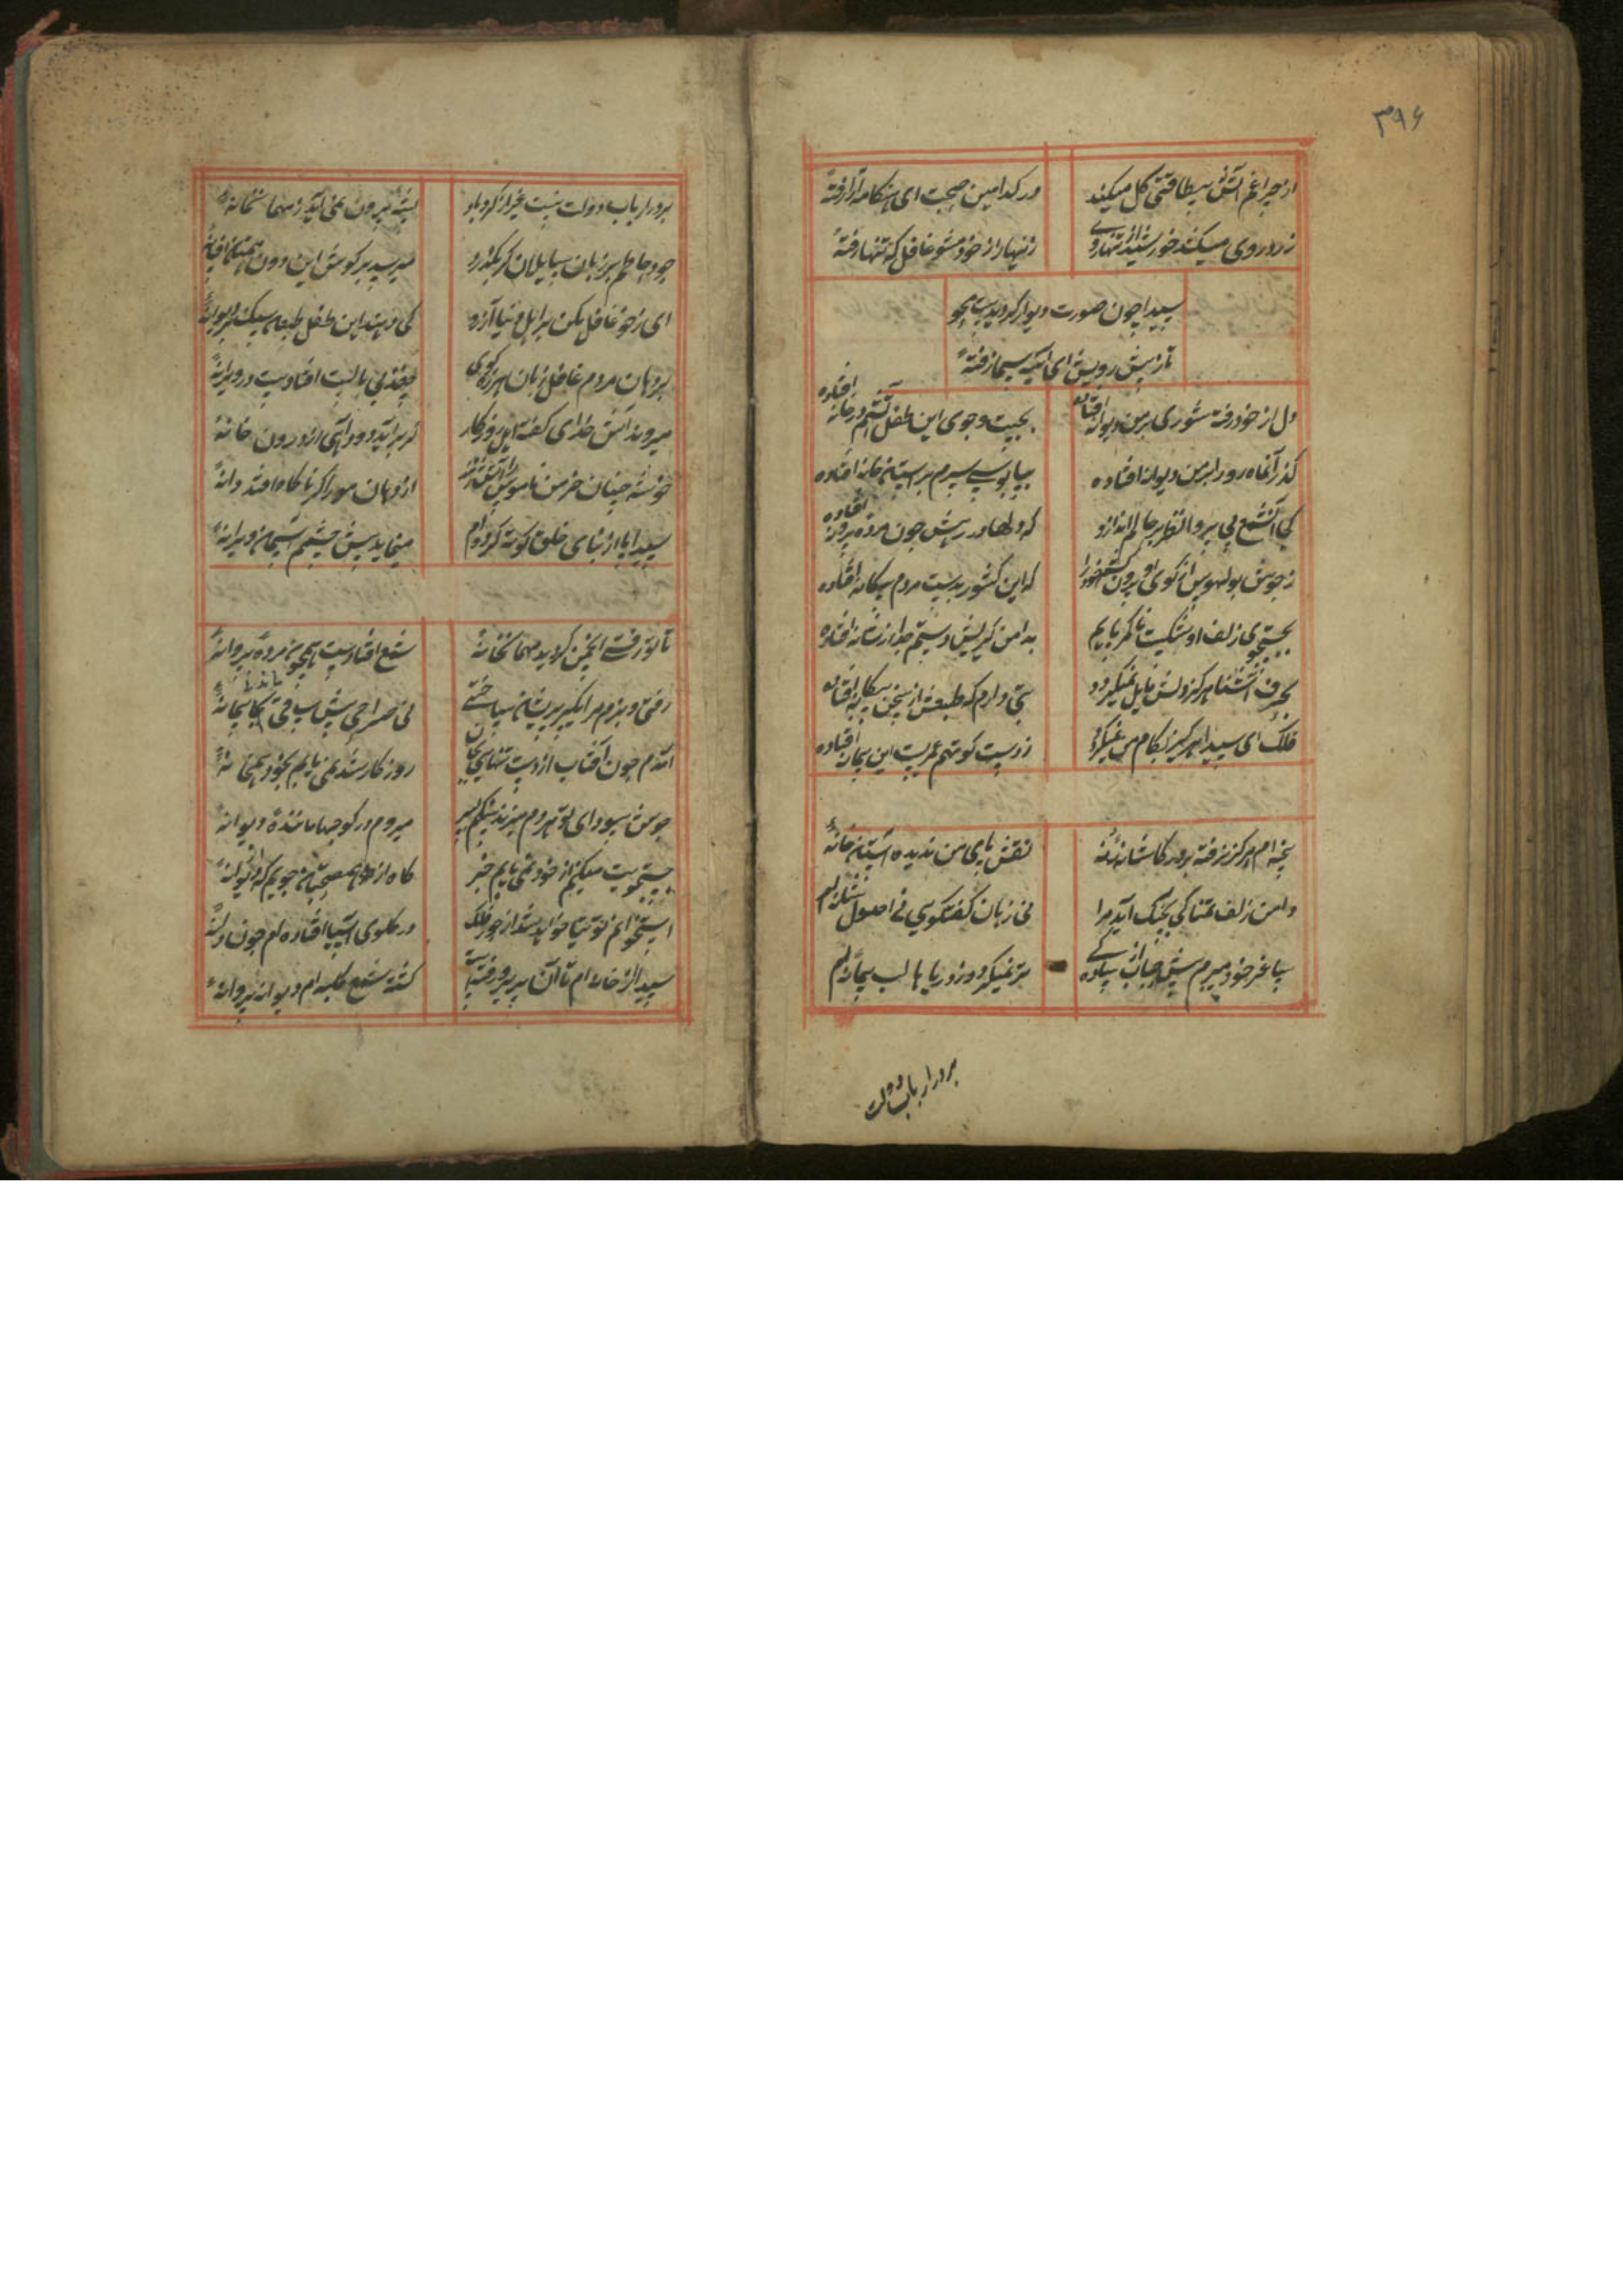 ۳۹۶
از چراغم آتش بیطاقتی گل میکند
در کدامین صحبت ای هنکامه آرا رفتهٔ
زرد روی میکشد خورشید از تنها روی
زینهار از خود مشو غافل که تنها رفتهٔ
سیدا چون صورت دیوار کردیدست محو
تا ز پیش رویش ای آیینه سیما رفتهٔ
دل از خود رفته شوری بر من دیوانه افتاده
بجست و جوی این طفل آتشم در خانه افتاده
گذر آنماه رو را بر من دیوانه افتاده
بپابوسی سرم بر آستان خانه افتاده
کی آن شمع بی پروا نظر بر حالم اندازد
که دلها در رهش چون مرده پروانه افتاده
ز جوش بوالهوس از کوی او بیرون کشم خود را
که این کشور بدست مردم بیکانه افتاده
بجستجوی زلف او شکست ناکم یابم
بدامن کیریش دستم جدا از شانه افتاده
بحرف آشنا هرکز دلش مایل نمیکردد
بتی دارم که طبعش از سخن بیکانه افتاده
فلک ای سیدا هرکز بکام من نمیکردد
ز دست کوتهم عمریست این پیمانه افتاده
پنجه ام هرکز نرفته بر در کاشانهٔ
نقش پای من ندیده آستان خانهٔ
دامن زلف تمنا کی بچنک آید مرا
نی زبان گفتکویی نی اصول شانه ام
ساغر خود میبرم پیش حباب از سادگی
تر نمیکردد ز دریاها لب پیمانه ام
بر در ارباب دولت
بر در ارباب دولت نیست غیر از گرد باد
پشه بیرون نمی آید ز مهمانخانهٔ
جود حاتم بر زبان سایلان کر بکذرد
میرسد بر کوش این دونهمتان افسانهٔ
ای ز خود غافل مکن بر اهل دنیا آرزو
کی دهند این طفل طبعان سنک بر دیوانهٔ
بر دهان مردم غافل زبان هرزه کوی
چغذ بی بالیست افتادست در ویرانهٔ
میروند آتش خدای گفته اهل روزکار
کر برآید دود آهی از درون خانهٔ
خوشه چینان خرمن ناموس را آتش زنند
از دهان مور اکر ناکاه افتد دانهٔ
سیدا پا از بنای خلق کوته کرده ام
مینماید پیش چشمم آسمان ویرانهٔ
تا تو رفتی انجمن کردید مهمانخانهٔ
شمع افتادست همچون مرده پروانهٔ
رفتی و بزم مرا یکسر پریشان ساختی
نی صراحی پیش ساقی ماند نی پیمانهٔ
آمدم چون آفتاب از دست تنهایی بجان
روز کار شد نمی یابم بخود همخانهٔ
جوش سودای تو هر دم میزند سنکم بسر
میروم در کوچها مانندهٔ دیوانهٔ
جستجویت میکنم از خود نمی یابم خبر
استخوانم توتیا خواهد شد از جور فلک
در کلوی آسیا افتاده ام چون دانهٔ
سیدا از خانه ام تا آن پریرو رفته است
کشته شمع کلبه ام دیوانه پروانهٔ